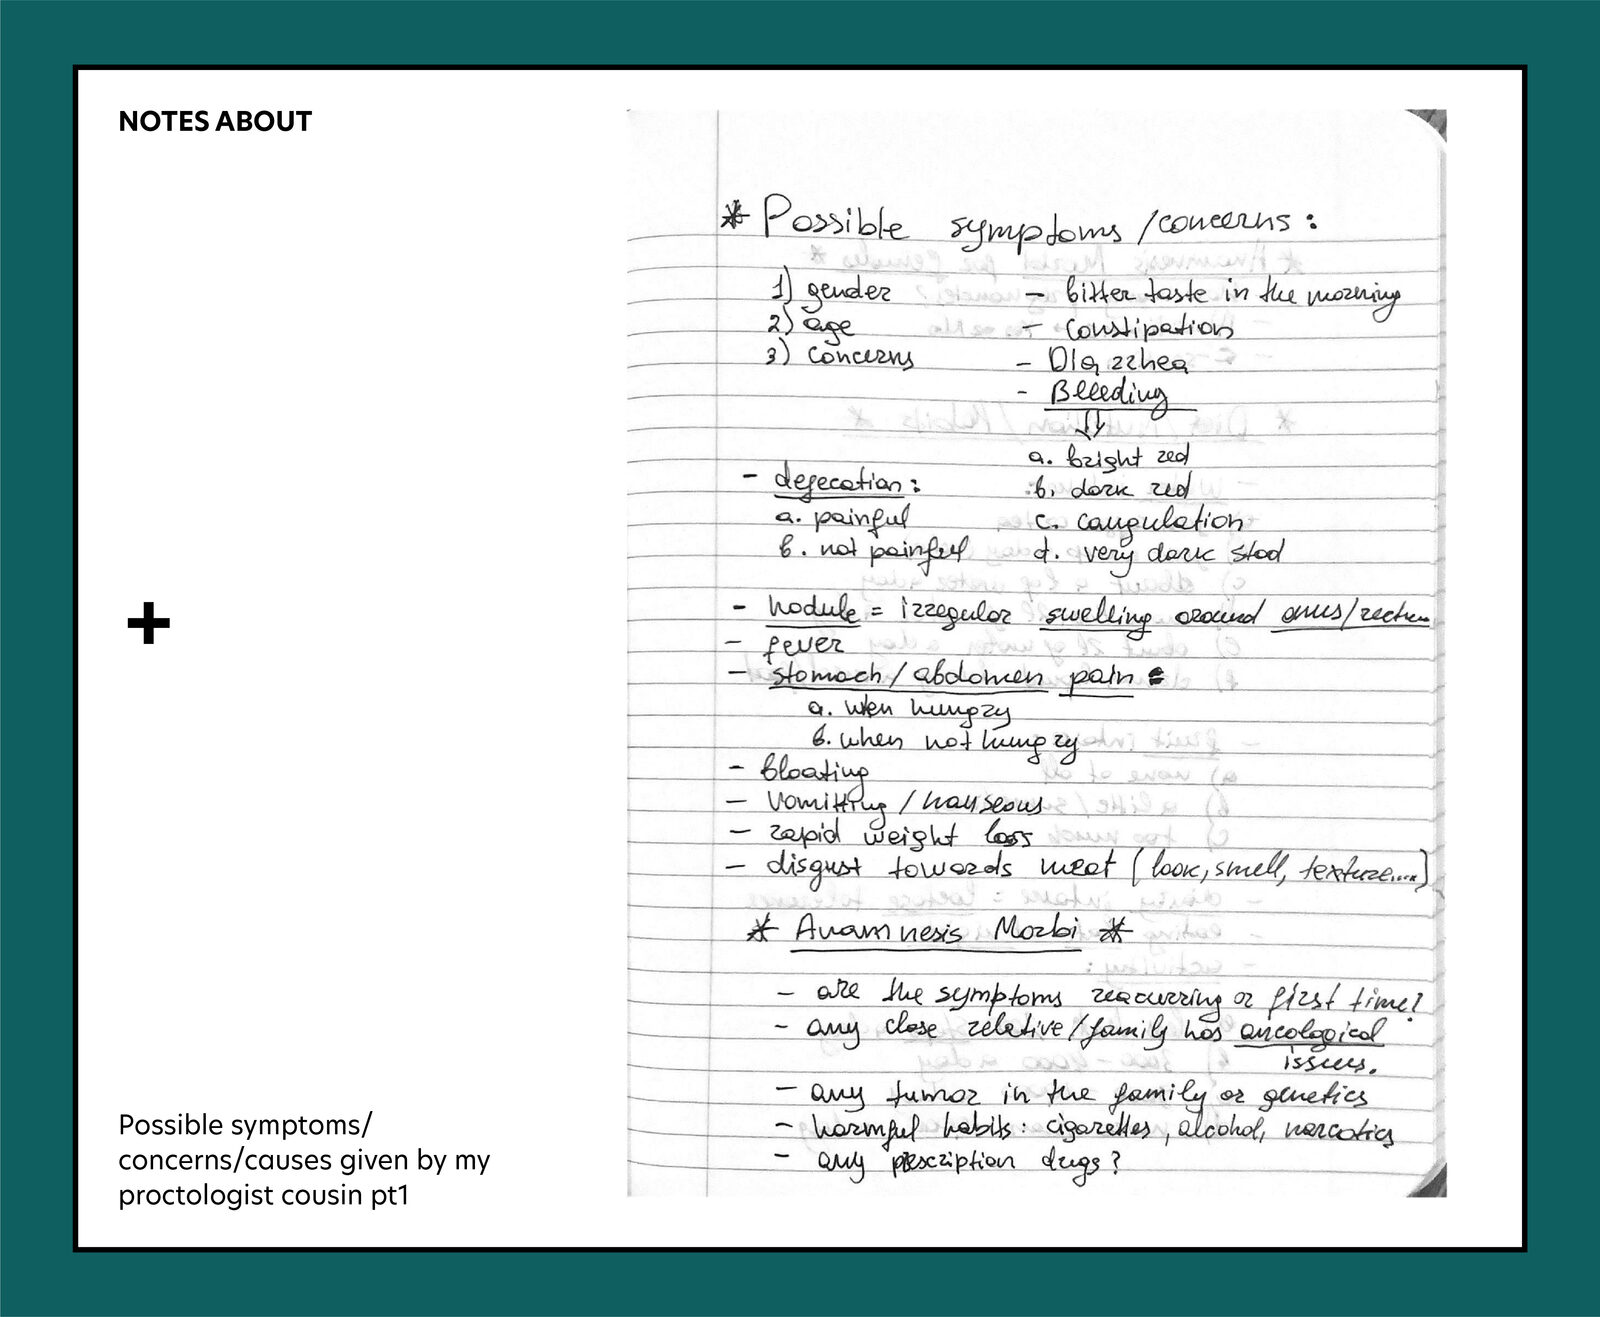 NOTES ABOUT
+
Possible symptoms/
concerns/causes given by my
proctologist cousin pt1
* Possible symptoms /concerns:
1) gender
2) age
3) concerns
- bitter taste in the morning
- constipation
- Diarrhea
- Bleeding
a. bright red
b. dark red
c. caugulation
d. very dark stool
- defecation:
a. painful
b. not painful
- nodule = irregular swelling around anus/rectum
- fever
- stomach / abdomen pain =
a. when hungry
b. when not hungry
- bloating
- vomitting / nauseous
- rapid weight loss
- disgust towards meat (look, smell, texture....)
* Anamnesis Morbi *
- are the symptoms reacurring or first time?
- any close relative/family has oncological
issues.
- any tumor in the family or genetics
- harmful habits: cigarettes, alcohol, narcotics
- any prescription drugs?